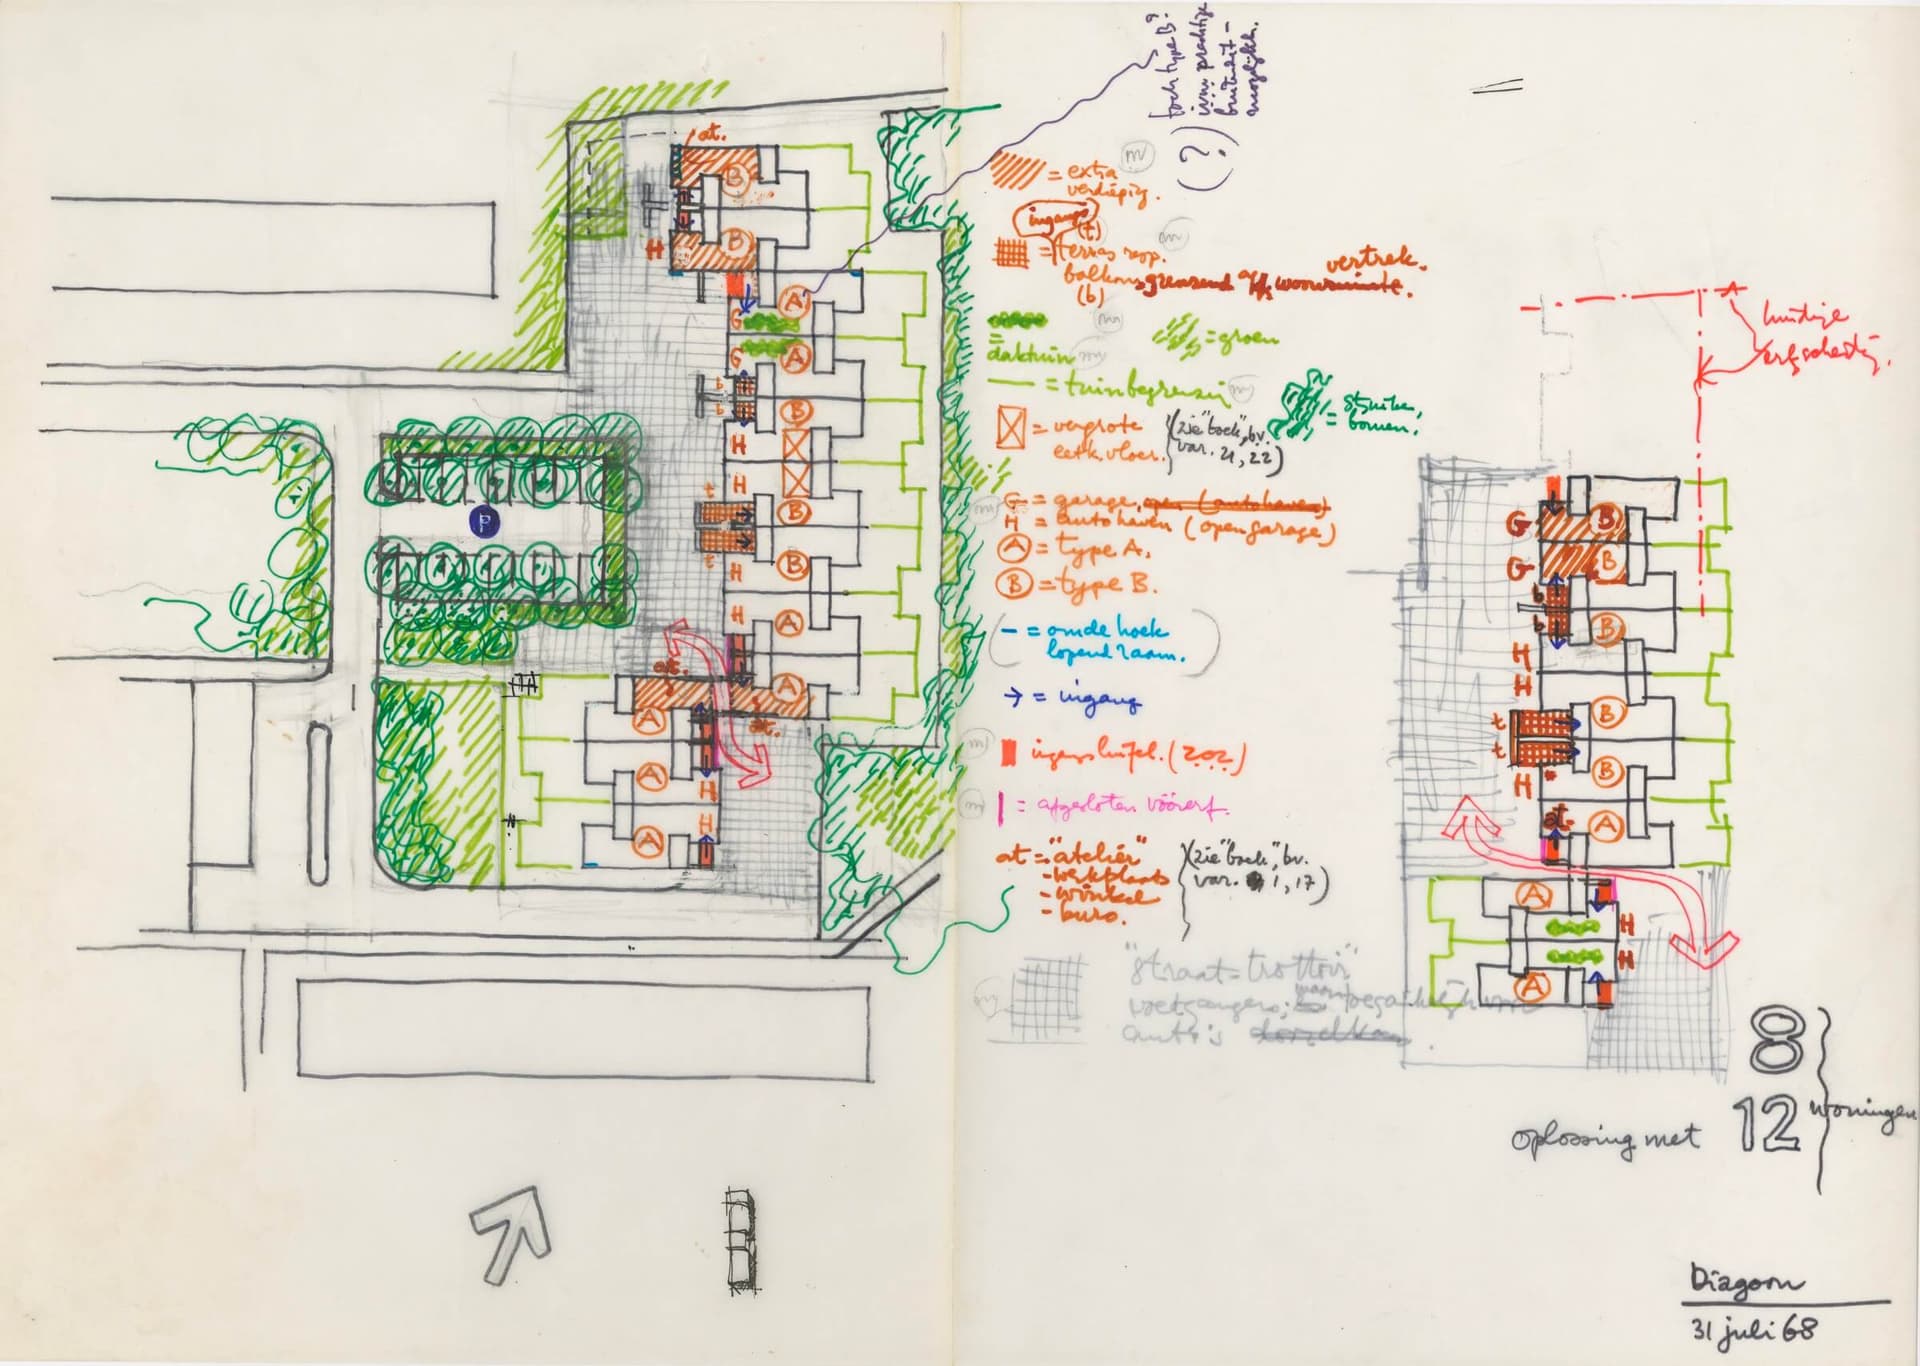 toch type B?
i.v.m. prachtige
buitenuit-
mogelijkh.
(?)
= extra
verdieping.
ingangs
(t)
= terras resp.
balkons grenzend a/h woonruimte.
vertrek.
(b)
=
daktuin
= groen
= tuinbegrenzing
= struiken,
bomen.
= vergrote
eetk. vloer.
(zie "boek", bv.
var. 21, 22)
G = garage, open (autohaven)
H = autohaven (open garage)
A = type A.
B = type B.
- = om de hoek
lopend raam.
→ = ingang
ingangsluifel. (202)
| = afgesloten vóórerf.
at = "atelier"
- werkplaats
- winkel
- buro.
(zie "boek", bv.
var. 1, 17)
"straat = trottoir"
voetgangers;
auto's
at.
B
B
H
A
G
G
A
b
b
B
H
H
t
B
t
B
H
H
A
at.
A
at.
A
A
H
H
A
P
huidige
erfscheiding.
G
B
G
B
b
b
B
H
H
t
B
t
H
B
at.
A
A
H
H
A
8
12
woningen
oplossing met
Diagoon
31 juli 68